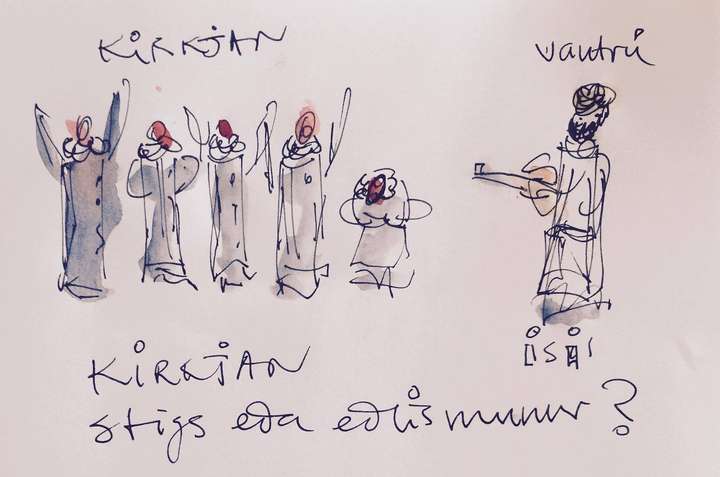 KIRKJAN
vantrú
ISIS
KIRKJAN
stigs eða eðlismunur?